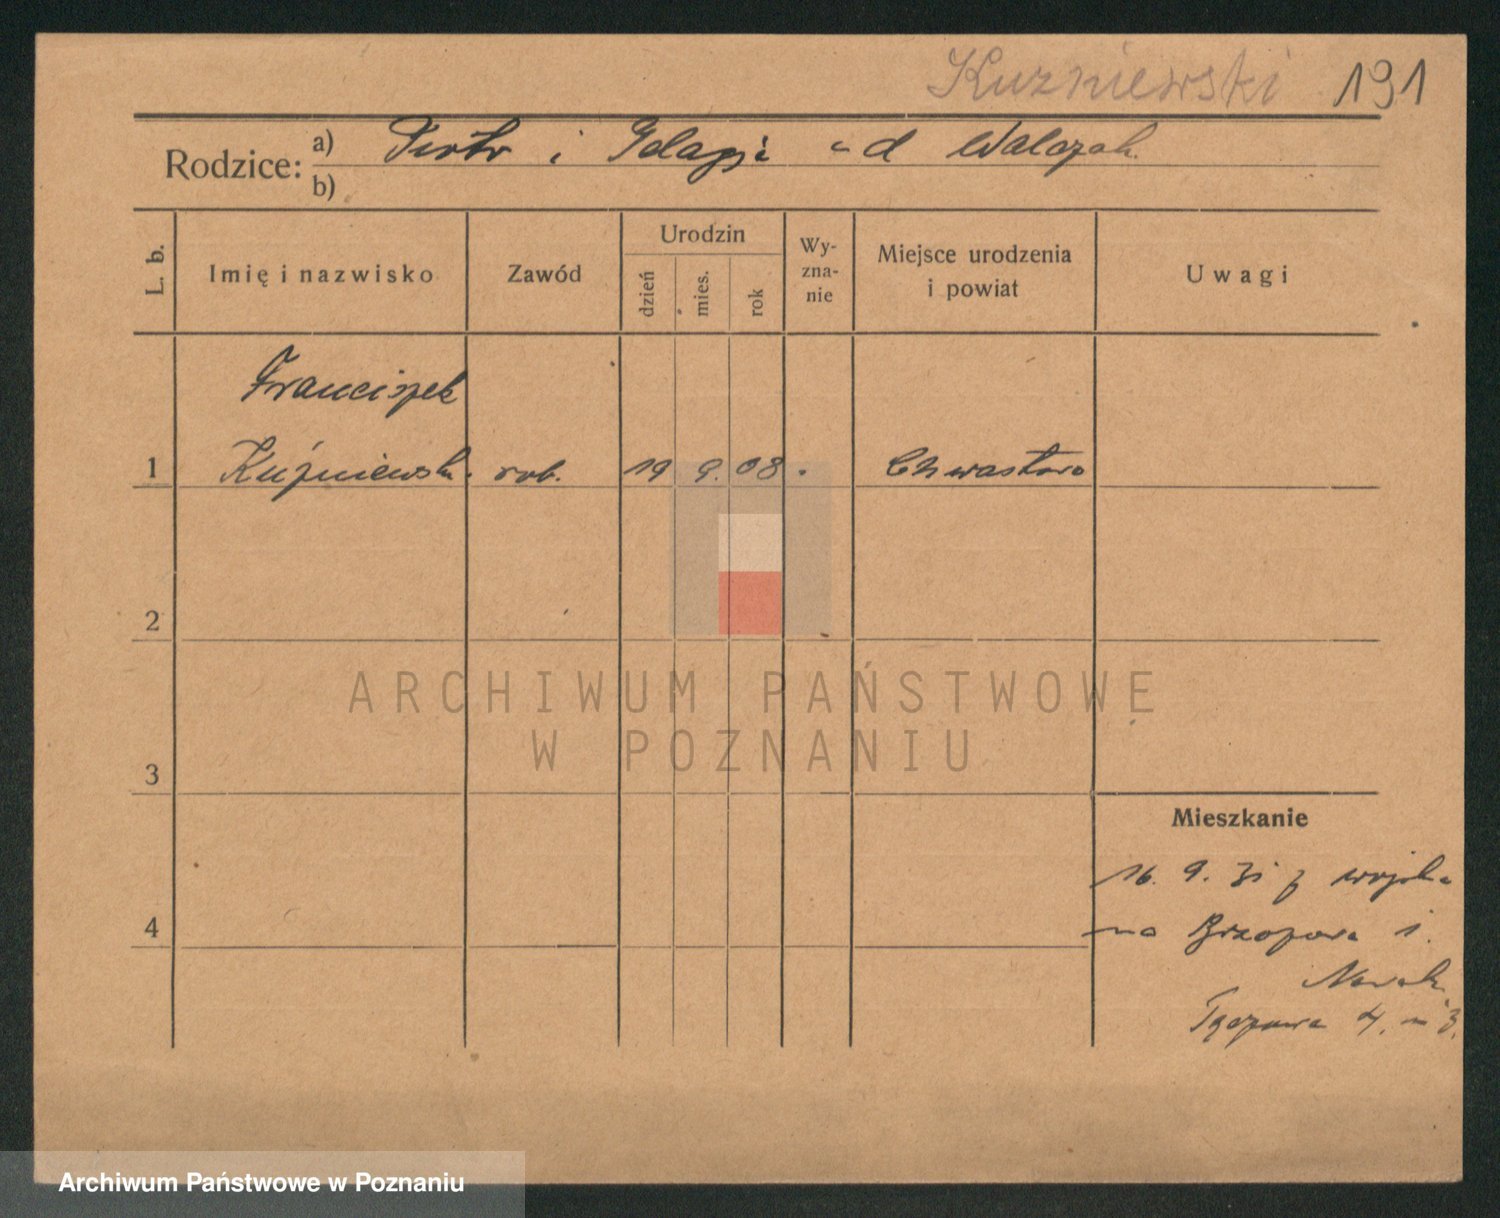 Kuzniewski 191
Rodzice: a) Piotr i Pelagja ud Walczak
b)
L. b.
Imię i nazwisko
Zawód
Urodzin
dzień
mies.
rok
Wy-
zna-
nie
Miejsce urodzenia
i powiat
Uwagi
Franciszek
1 Kuźniewski. rob. 19 9. 08.
2
3
4
Mieszkanie
16. 9. 31 z wojska
na
Nowak
4. m 3.
ARCHIWUM PAŃSTWOWE
W POZNANIU
Archiwum Państwowe w Poznaniu